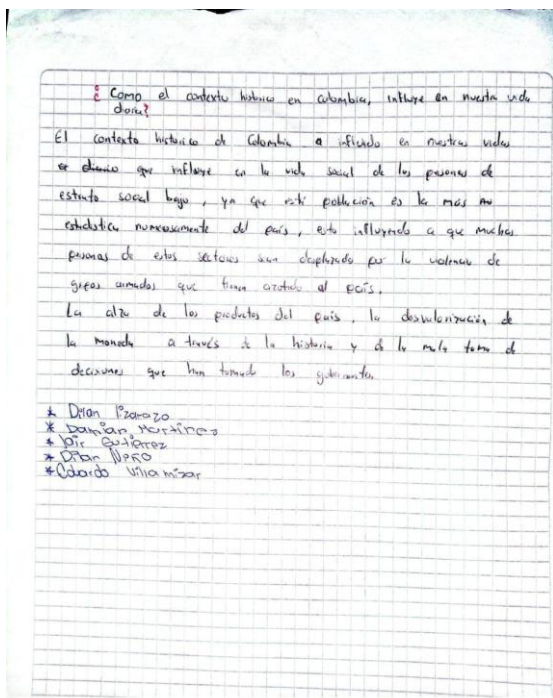 ¿Como el contexto historico en colombia, influye en nuestra vida
diaria?
El contexto historico de Colombia a influido en nuestras vidas
diario que influye en la vida social de las personas de
estrato social bajo, ya que esta población es la más
estadistica numerosamente del país, esto influyendo a que muchas
personas de estos sectores sean desplazado por la violencia de
grupos armados que tienen azotado al país.
La alza de los productos del país, la desvalorización de
la moneda a través de la historia y de la mala toma de
decisiones que han tomado los gobernantes
* Dilan Lizarazo
* Damian Martinez
* Jair Gutierrez
* Dilan
* Eduardo Villamizar